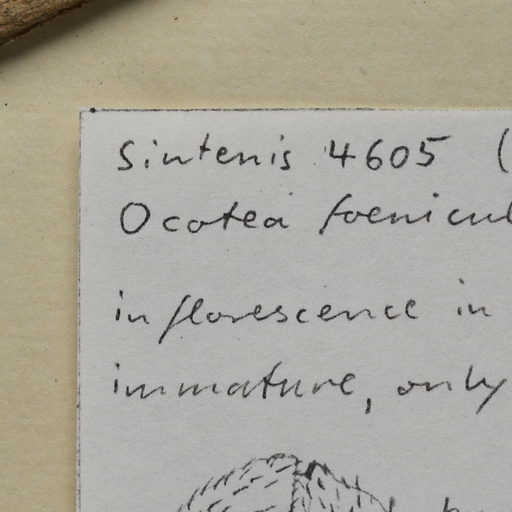 Sintenis 4605 (
Ocotea foenicul
inflorescence in
immature, only